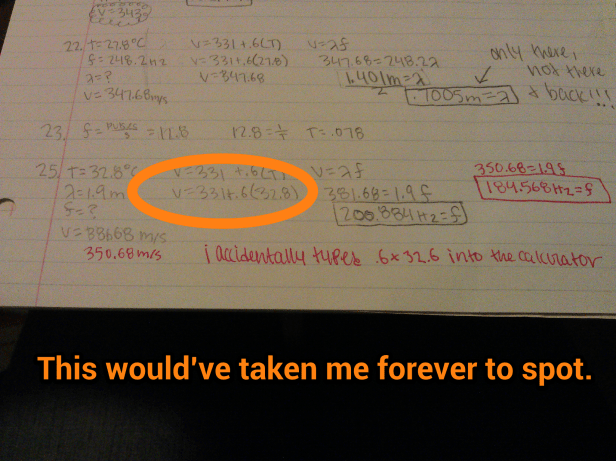 V=343
22. T=27.8°C V=331+.6(T) V=λf
f=248.2Hz V=331+.6(27.8) 347.68=248.2λ
λ=? V=347.68 1.401m=λ
V=347.68m/s 2 .7005m=λ
only there, not there & back!!!
23. = 12.8 12.8=1/T T=.078
25. T=32.8°C V=331+.6(T) V=λf
λ=1.9m V=331+.6(32.8) 381.68=1.9f
f=? 200.884Hz=f
m/s
350.68m/s
350.68=1.9f
184.568Hz=f
i accidentally types .6×32.6 into the calculator
This would've taken me forever to spot.